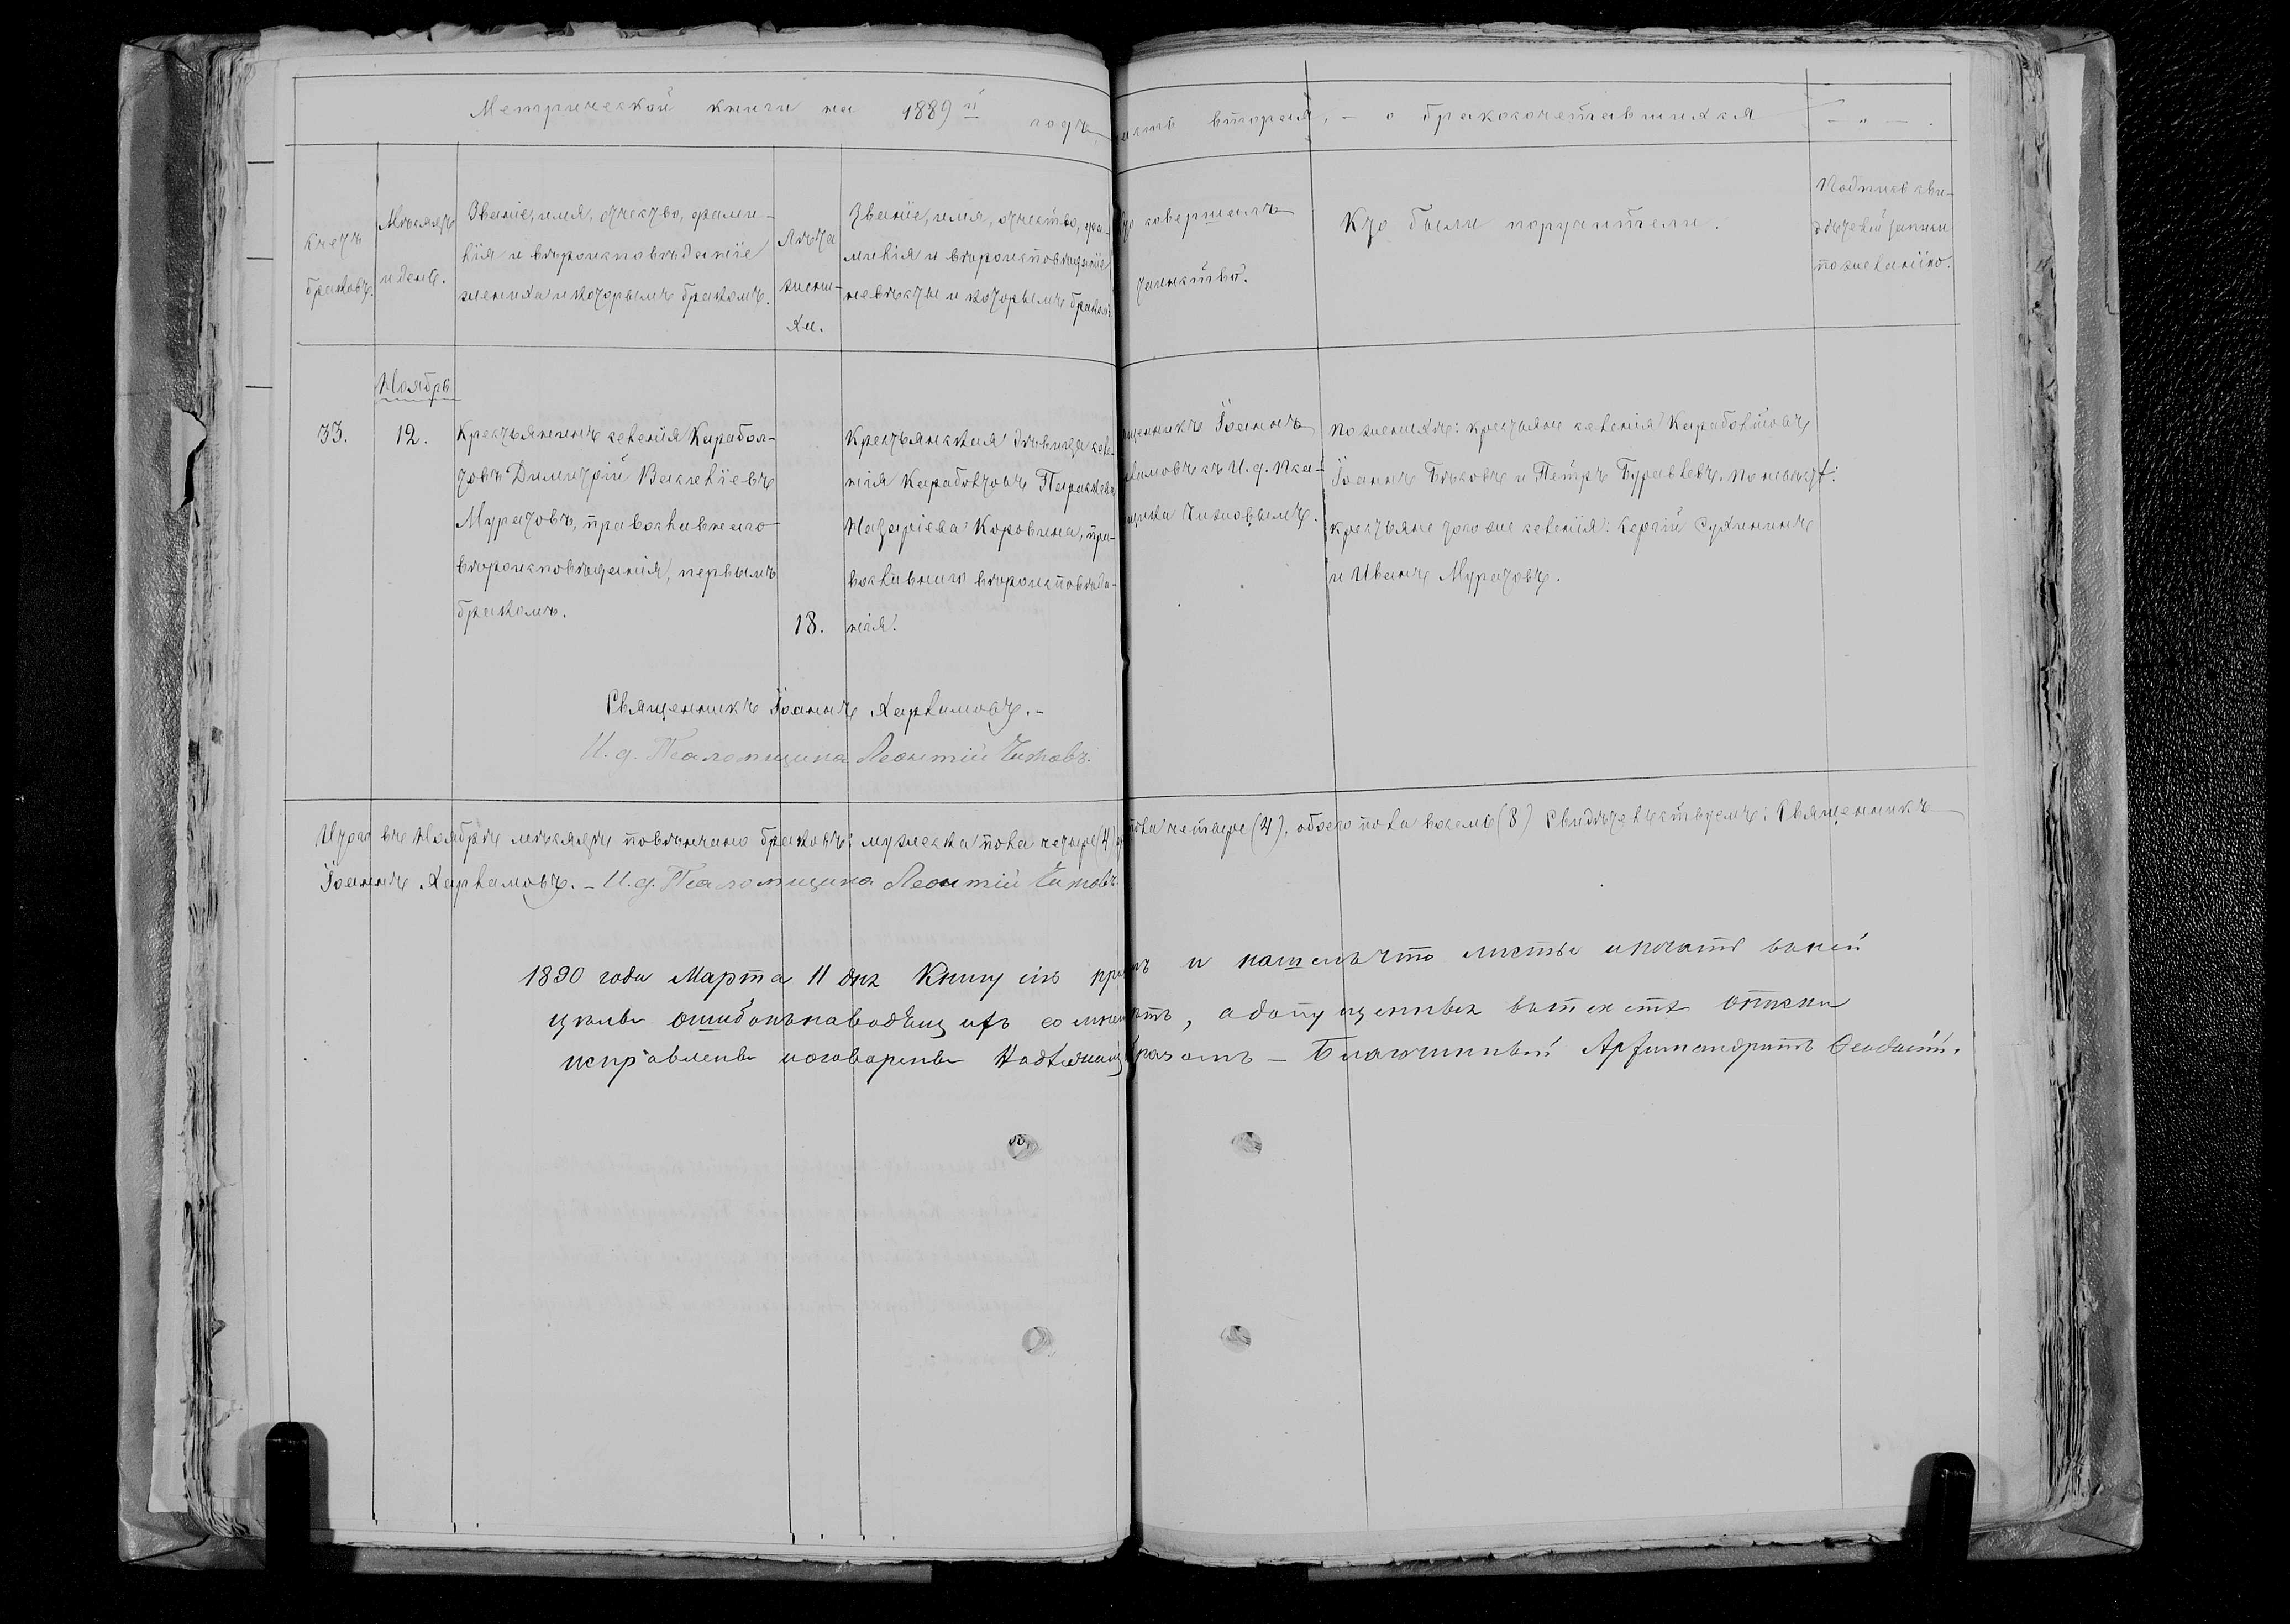 Метрической книги на 1889й годъ, часть вторая, – о бракосочетавшихся – " – .
Счетъ
браковъ.
Мѣсяцъ
и день.
Званіе, имя, отчество, фами-
лія и вѣроисповѣданіе
жениха и которымъ бракомъ.
Лѣта
жени-
ха.
Званіе, имя, отчество, фа-
милія и вѣроисповѣданіе
невѣсты и которымъ бракомъ.
то совершалъ
таинство.
Кто были поручители.
Подпись сви-
дѣтелей записи
по желанію.
Ноябрь
33.
12.
Крестьянинъ селенія Карабол-
товъ Димитрій Василіевъ
Муратовъ, православнаго
вѣроисповѣданія, первымъ
бракомъ.
18.
Крестьянская дѣвица селе-
нія Караболтовъ Параскева
Назаріева Коровина, пра-
вославнаго вѣроисповѣда-
нія.
щенникъ Іоаннъ
рламовъ съ И. д. Пса-
мщика Чижовымъ.
по женихѣ: крестьяне селенія Караболтовъ
Іоаннъ Быковъ и Петръ Буравлевъ. По невѣстѣ:
крестьяне того же селенія: Сергій Сухининъ
и Иванъ Муратовъ.
Священникъ Іоаннъ Харламовъ. –
И. д. Псаломщика Леонтій Чижовъ.
Итого въ Ноябрѣ мѣсяцѣ повѣнчано браковъ: мужеска пола четыре (4) пола четыре (4), обоего пола восемь (8) Свидѣтельствуемъ: Священникъ
Іоаннъ Харламовъ. – И. д. Псаломщика Леонтій Чижовъ.
1890 года Марта 11 дня Книгу сію и нашелъ что листы и печати в оной
цѣлы ошибокъ наводящихъ сомненіе нѣтъ, а допущенныя въ текстѣ описки
исправлены и оговорены надлежащ разомъ – Благочинный Архимандритъ Ѳеодосій.